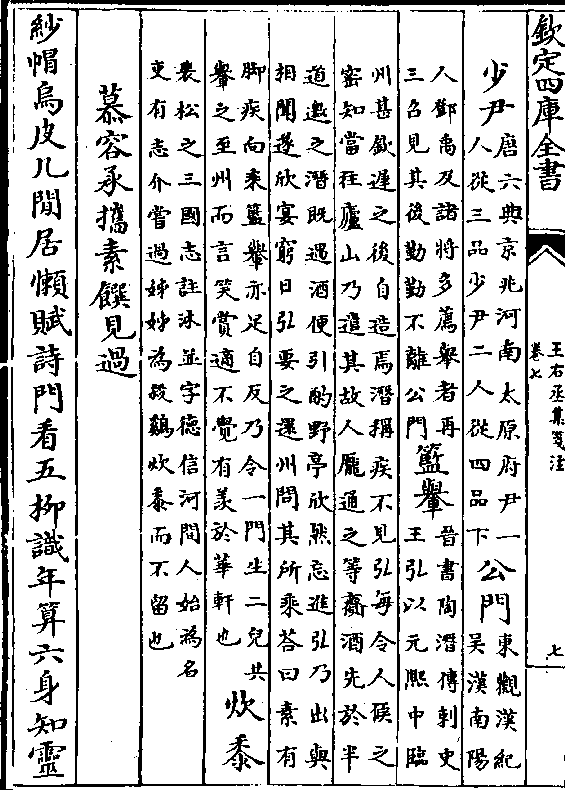 欽定四庫全書
王右丞集箋注
卷七
七
少尹
唐六典京兆河南太原府尹一
人從三品少尹二人從四品下
公門
東觀漢紀
吳漢南陽
人鄧禹及諸將多薦舉者再
三召見其後勤勤不離公門
籃轝
晉書陶潛傳刺史
王弘以元熙中臨
州甚欽遲之後自造焉潛稱疾不見弘每令人候之
密知當往廬山乃遣其故人龐通之等齎酒先於半
道邀之潛既遇酒便引酌野亭欣然忘進弘乃出與
相聞遂欣宴窮日弘要之還州問其所乘荅曰素有
脚疾向乘籃轝亦足自反乃令一門生二兒共
轝之至州而言笑賞適不覺有羨於華軒也
炊黍
裴松之三國志註沐並字德信河間人始為名
吏有志介嘗過姊姊為殺鷄炊黍而不留也
慕容承攜素饌見過
紗帽烏皮几閒居懶賦詩門看五柳識年算六身知靈